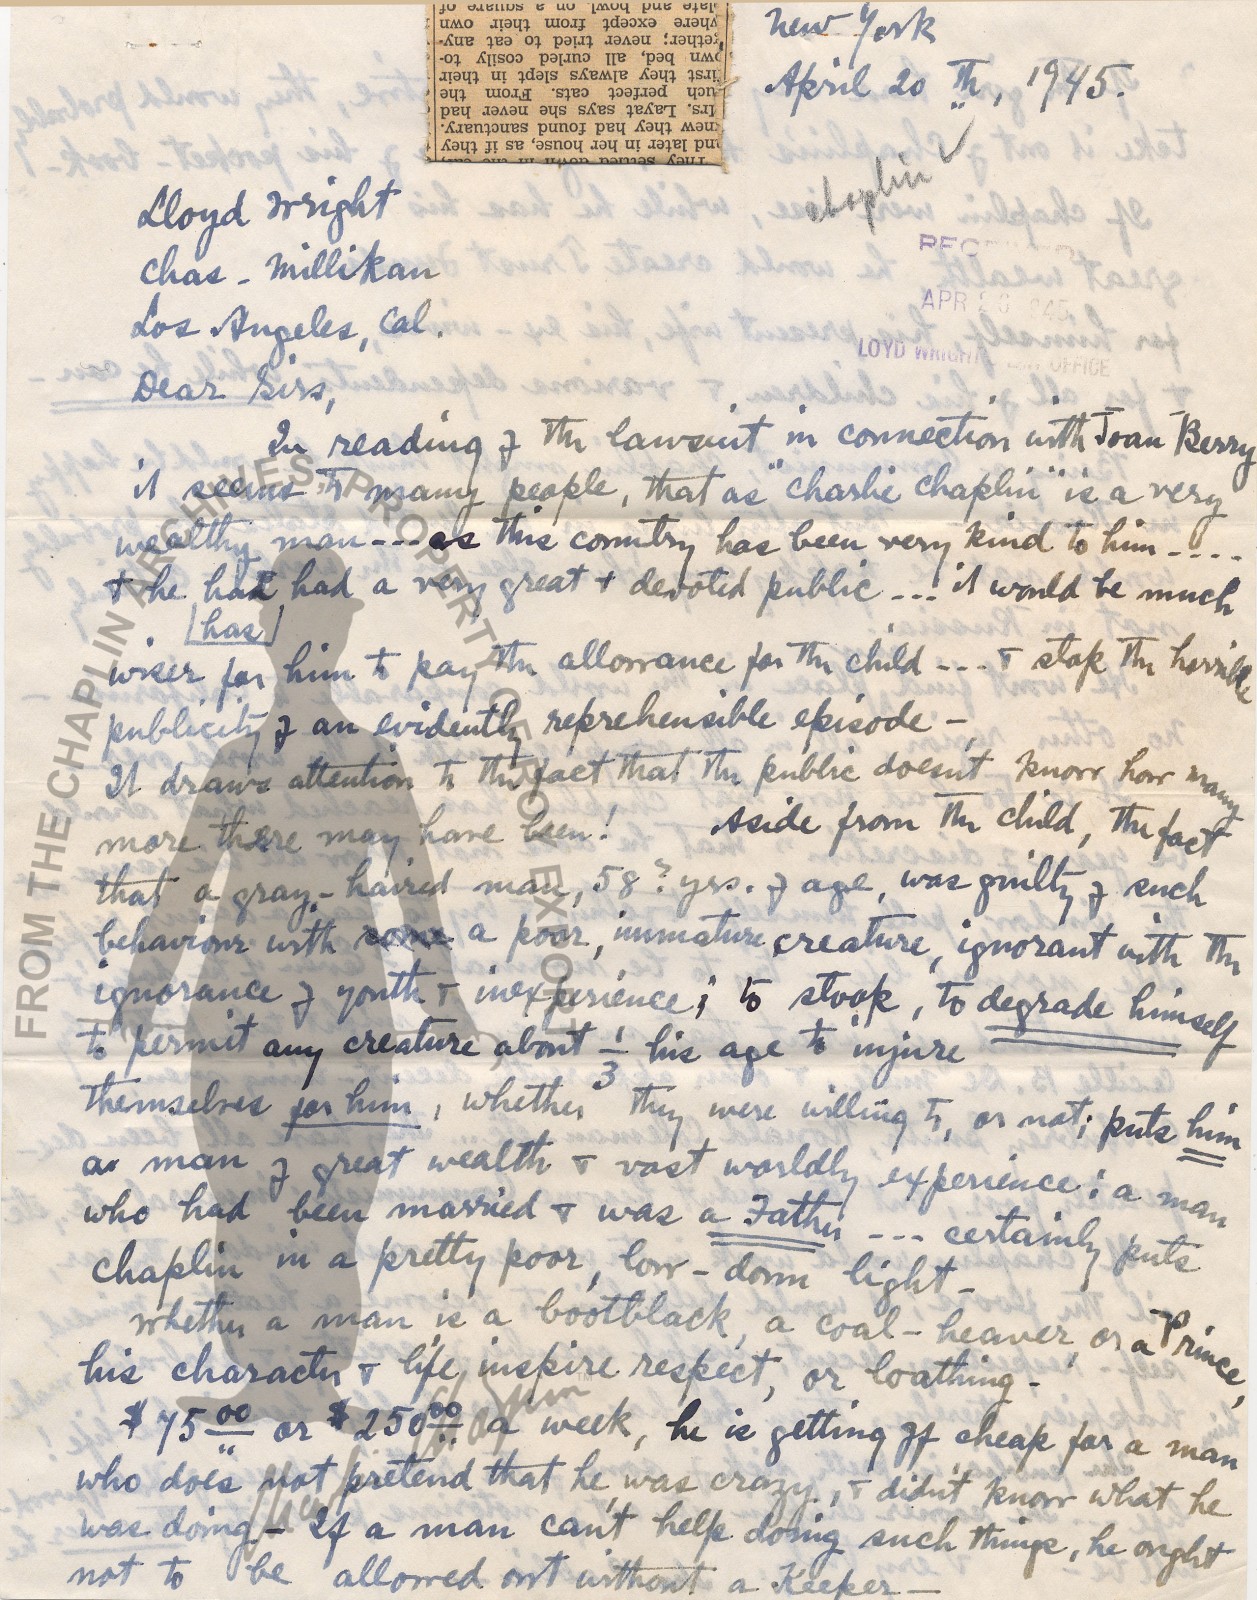 New York
April 20 th, 1945.
chaplin ✓
late and howl on a square of
where except from their own
gether; never tried to eat any-
own bed, all curled cosily to-
first they always slept in their
such perfect cats. From the
Mrs. Layat says she never had
knew they had found sanctuary.
and later in her house, as if they
They settled down in the car,
RECEIVED
APR 23 1945
LOYD WRIGHT LAW OFFICE
Lloyd Wright
Chas - Millikan
Los Angeles, Cal.
Dear Sirs,
In reading of the lawsuit in connection with Joan Berry
it seems to many people, that as "Charlie Chaplin" is a very
wealthy man --- as this country has been very kind to him ----
+ he had had a very great + devoted public --- it would be much
[has]
wiser for him to pay the allowance for the child --- + stop the horrible
publicity of an evidently reprehensible episode -
It draws attention to the fact that the public doesn't know how many
more there may have been! Aside from the child, the fact
that a gray-haired man, 58? yrs. of age, was guilty of such
behaviour with a poor, immature creature, ignorant with the
ignorance of youth + inexperience; to stoop, to degrade himself
to permit any creature about 1/3 his age to injure
themselves for him, whether they were willing to, or not; puts him
a man of great wealth + vast worldly experience; a man
who had been married + was a Father --- certainly puts
Chaplin in a pretty poor, low-down light -
Whether a man is a bootblack, a coal-heaver, or a Prince,
his character + life, inspire respect, or loathing -
$75.00 or $250.00 a week, he is getting off cheap for a man
who does not pretend that he was crazy, + didn't know what he
was doing - If a man can't help doing such things, he ought
not to be allowed out without a Keeper -
FROM THE CHAPLIN ARCHIVES, PROPERTY OF ROY EXPORT